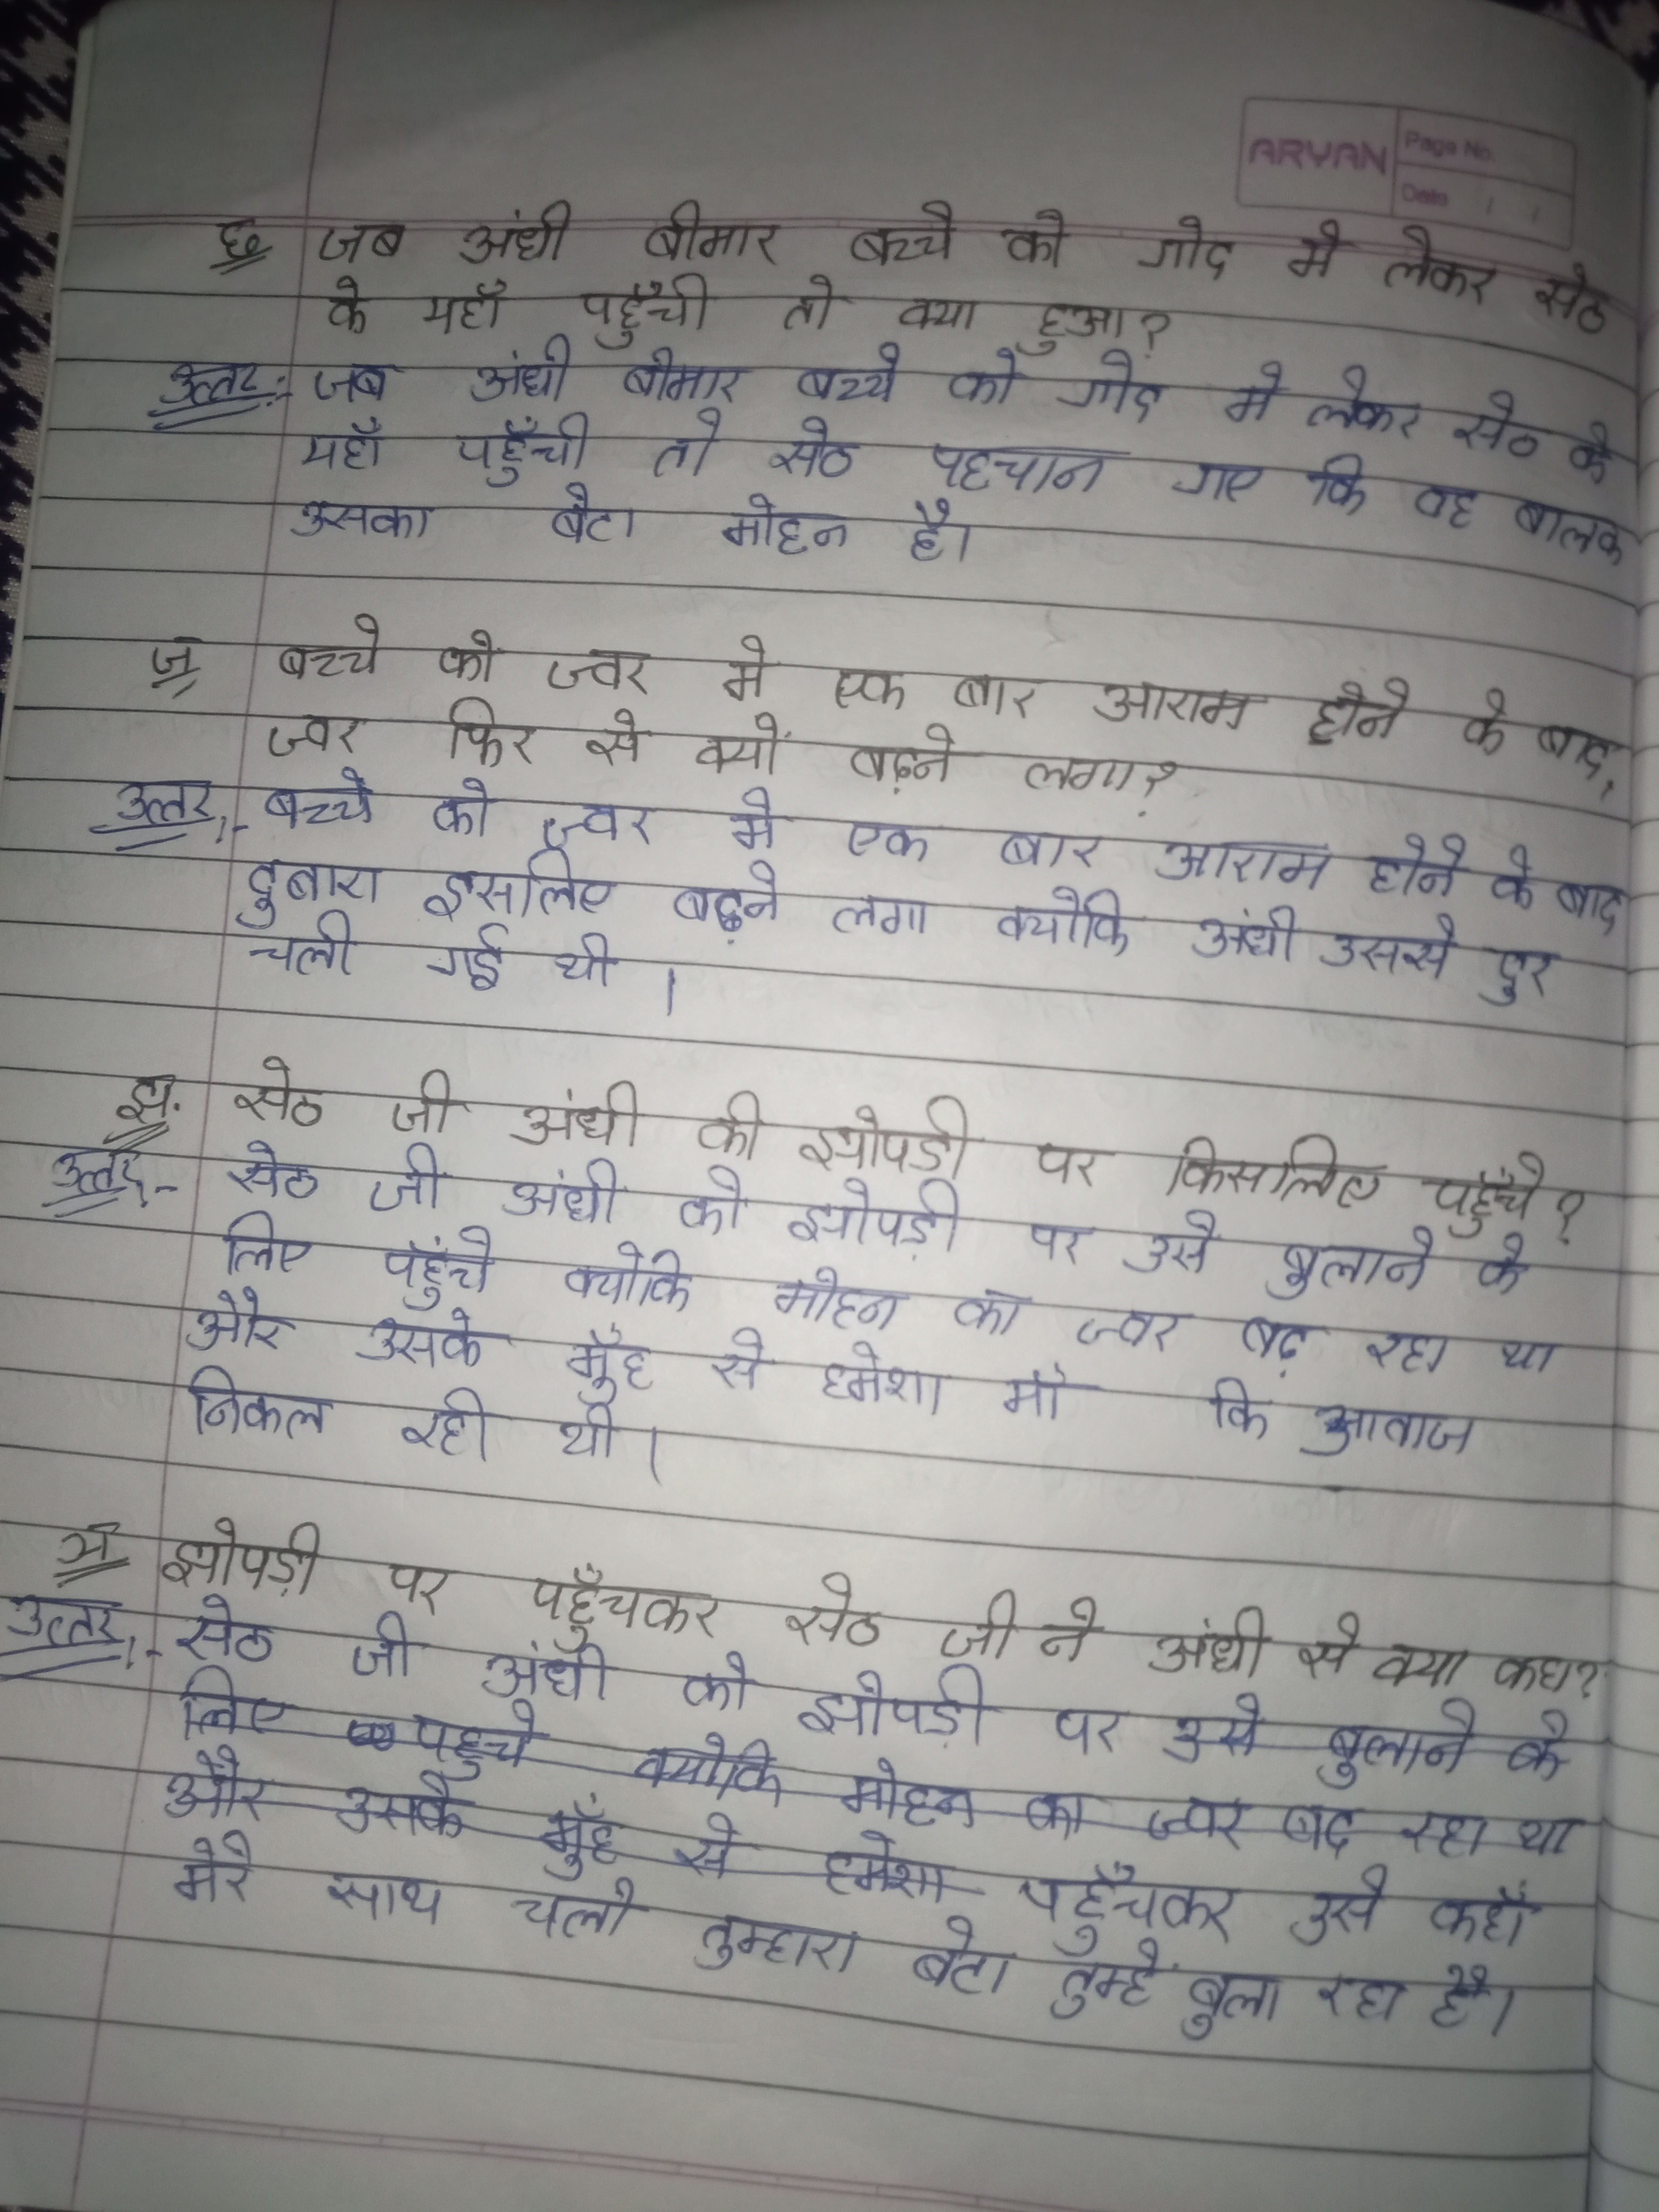 ARYAN
Page No.
Date / /
छ जब अंधी बीमार बच्चे को गोद मे लेकर सेठ
के यहाँ पहुँची तो क्या हुआ?
उत्तर:- जब अंधी बीमार बच्चे को गोद मे लेकर सेठ के
यहाँ पहुँची तो सेठ पहचान गए कि वह बालक
उसका बेटा मोहन है।
ज बच्चे को ज्वर मे एक बार आराम होने के बाद,
ज्वर फिर से क्यों बढ़ने लगा?
उत्तर:- बच्चे को ज्वर मे एक बार आराम होने के बाद
दुबारा इसलिए बढ़ने लगा क्योकि अंधी उससे दुर
चली गई थी ।
झ. सेठ जी अंधी की झोपडी पर किसलिए पहुँचे?
उत्तर:- सेठ जी अंधी को झोपड़ी पर उसे बुलाने के
लिए पहुँचे क्योकि मोहन का ज्वर बढ़ रहा था
और उसके मुँह से हमेशा माँ कि आवाज
निकल रही थी।
ञ झोपड़ी पर पहुँचकर सेठ जी ने अंधी से क्या कहा?
उत्तर:- सेठ जी अंधी को झोपड़ी पर उसे बुलाने के
लिए पहुचे क्योकि मोहन का ज्वर बढ रहा था
और उसके मुँह से हमेशा पहुँचकर उसे कहाँ
मेरे साथ चलो तुम्हारा बेटा तुम्हे बुला रहा है।